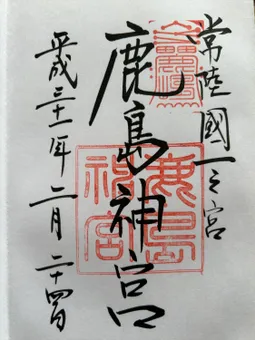 常陸國一之宮
鹿島神宮
鹿島神宮
平成三十一年二月二十四日